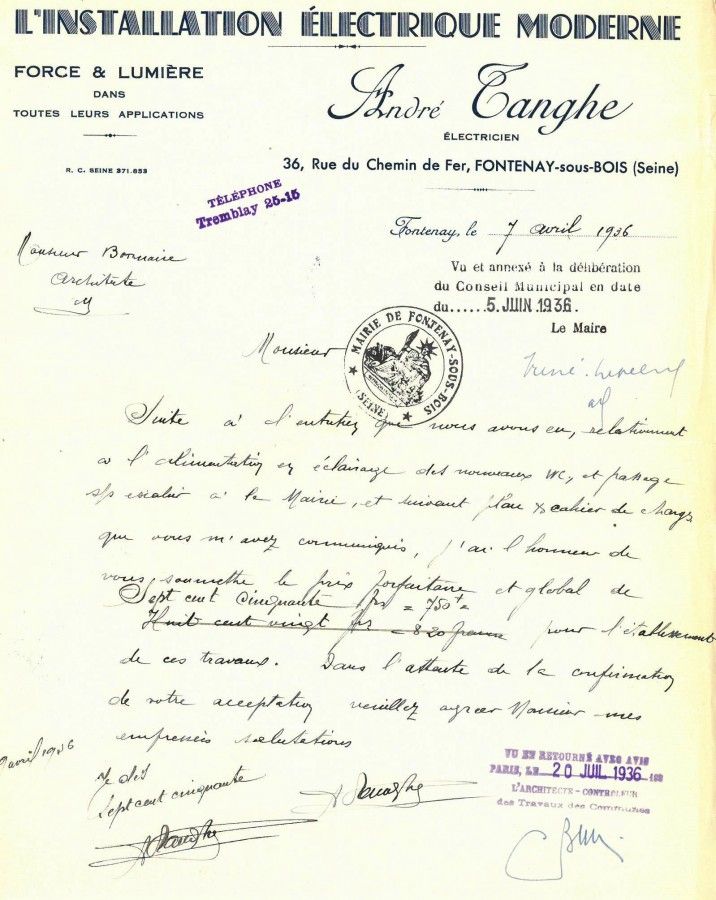 L'INSTALLATION ÉLECTRIQUE MODERNE
FORCE & LUMIÈRE
DANS
TOUTES LEURS APPLICATIONS
R. C. SEINE 371.853
André Tanghe
ÉLECTRICIEN
36, Rue du Chemin de Fer, FONTENAY-sous-BOIS (Seine)
TÉLÉPHONE
Tremblay 25-15
Fontenay, le 7 avril 1936
Monsieur Bonnaire
Architecte
Vu et annexé à la délibération
du Conseil Municipal en date
du......5 JUIN 1936.
Le Maire
MAIRIE DE FONTENAY-SOUS-BOIS
(SEINE)
Monsieur
Suite à l'entretien que nous avons eu, relativement
a l'alimentation en éclairage des nouveaux WC, et passage
s/s escalier à la Mairie, et suivant plan & cahier de charges
que vous m'avez communiqués, j'ai l'honneur de
vous soumettre le prix forfaitaire et global de
Sept cent cinquante frs = 750 =
Huit cent vingt frs = 820 francs pour l'établissement
de ces travaux. Dans l'attente de la confirmation
de votre acceptation veuillez agréer Monsieur mes
empressées salutations
avril 1936
Je dis
Sept cent cinquante
VU ET RETOURNÉ AVEC AVIS
PARIS, LE 20 JUIL 1936 193
L'ARCHITECTE-CONTROLEUR
des Travaux des Communes